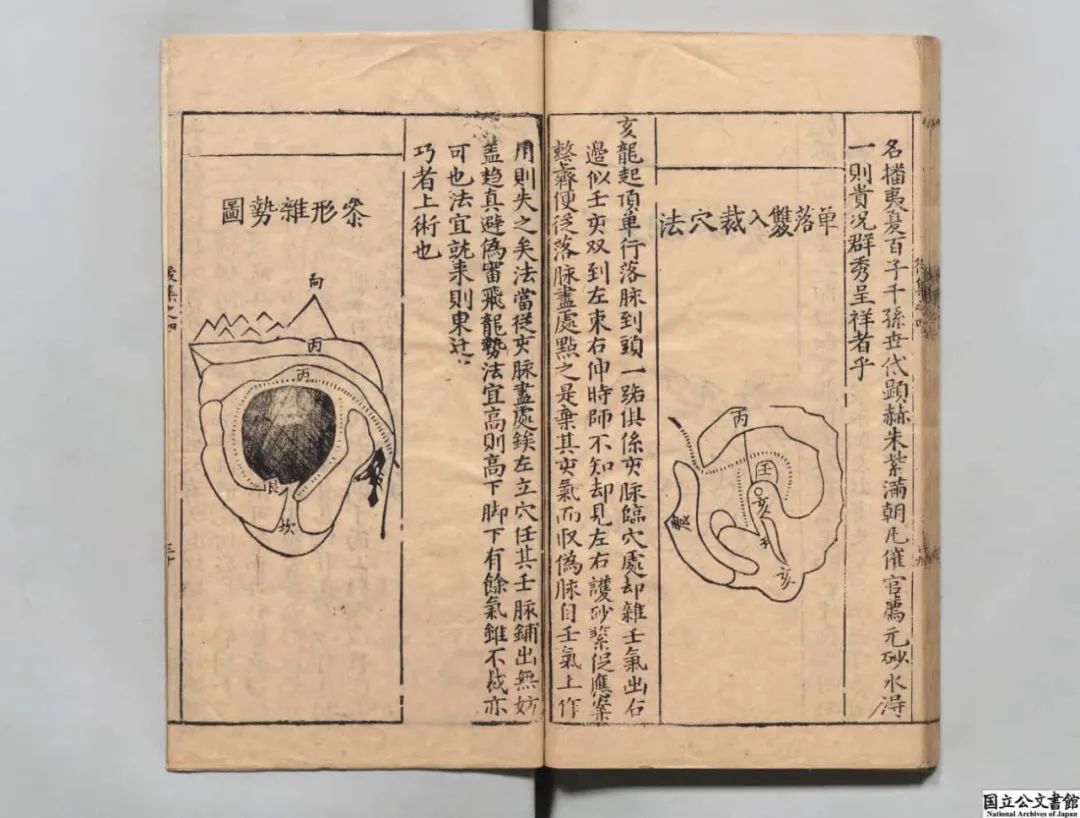 名播夷夏百子千孫世代顯赫朱紫滿朝凡催官薦元砂水得
一則貴况群秀呈祥者乎
单落雙入裁穴法
丙
壬
亥
震
亥
亥龍起頂单行落脉到頭一路俱係亥脉臨穴處却雜壬氣出右
邉似壬亥双到左東右伸時師不知却見左右護砂緊促應案
整齊便從落脉盡處點之是棄其亥氣而収偽脉自壬氣上作
用則失之矣法當從亥脉盡處鋑左立穴任其壬脉鋪出無妨
盖趋真避偽審飛龍勢法宜高則高下脚下有餘氣錐不裁亦
可也法宜就来則東迁
巧者上術也
形雜勢圖
向
丙
丙
艮
坎
国立公文書館
National Archives of Japan